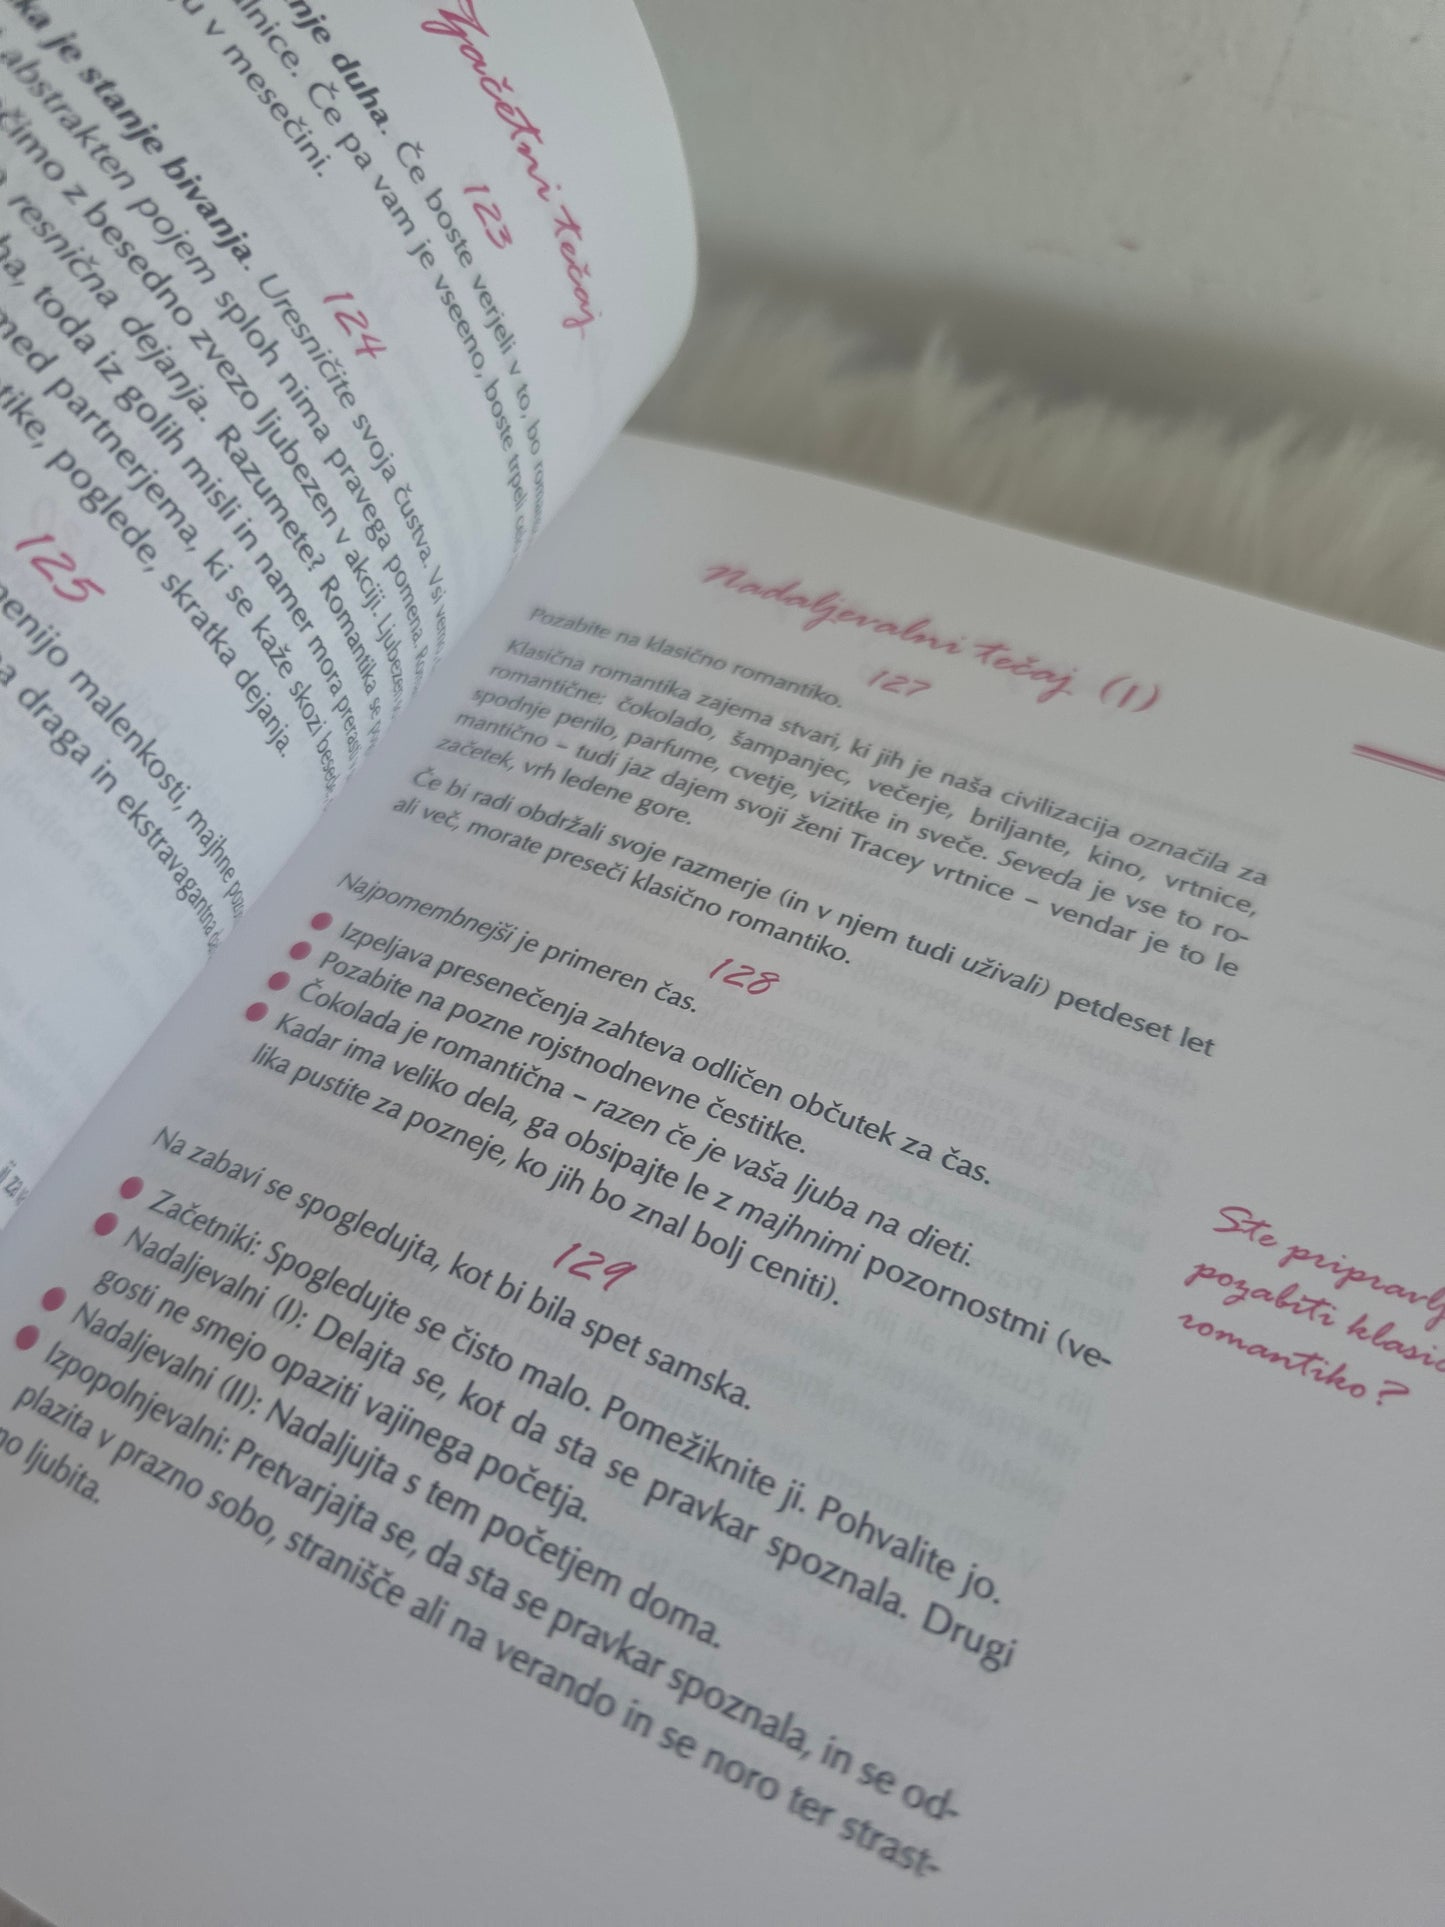 Začetni tečaj
123
nje duha. Če boste verjeli v to, bo
lnice. Če pa vam je vseeno, boste trpeli
v mesečini.
124
je stanje bivanja. Uresničite svoja čustva. Vsi vemo
abstrakten pojem sploh nima pravega pomena.
z besedno zvezo ljubezen v akciji. Ljubezen
resnična dejanja. Razumete? Romantika se
toda iz golih misli in namer mora prerasti
med partnerjema, ki se kaže skozi
poglede, skratka dejanja.
125
malenkosti, majhne
draga in ekstravagantna
Nadaljevalni tečaj (I)
127
Pozabite na klasično romantiko.
Klasična romantika zajema stvari, ki jih je naša civilizacija označila za
romantične: čokolado, šampanjec, večerje, briljante, kino, vrtnice,
spodnje perilo, parfume, cvetje, vizitke in sveče. Seveda je vse to ro-
mantično – tudi jaz dajem svoji ženi Tracey vrtnice – vendar je to le
začetek, vrh ledene gore.
Če bi radi obdržali svoje razmerje (in v njem tudi uživali) petdeset let
ali več, morate preseči klasično romantiko.
128
Najpomembnejši je primeren čas.
● Izpeljava presenečenja zahteva odličen občutek za čas.
● Pozabite na pozne rojstnodnevne čestitke.
● Čokolada je romantična – razen če je vaša ljuba na dieti.
● Kadar ima veliko dela, ga obsipajte le z majhnimi pozornostmi (ve-
lika pustite za pozneje, ko jih bo znal bolj ceniti).
129
Na zabavi se spogledujta, kot bi bila spet samska.
● Začetniki: Spogledujte se čisto malo. Pomežiknite ji. Pohvalite jo.
● Nadaljevalni (I): Delajta se, kot da sta se pravkar spoznala. Drugi
gosti ne smejo opaziti vajinega početja.
● Nadaljevalni (II): Nadaljujta s tem početjem doma.
● Izpopolnjevalni: Pretvarjajta se, da sta se pravkar spoznala, in se od-
plazita v prazno sobo, stranišče ali na verando in se noro ter strast-
no ljubita.
Ste
pozabiti
romantiko?